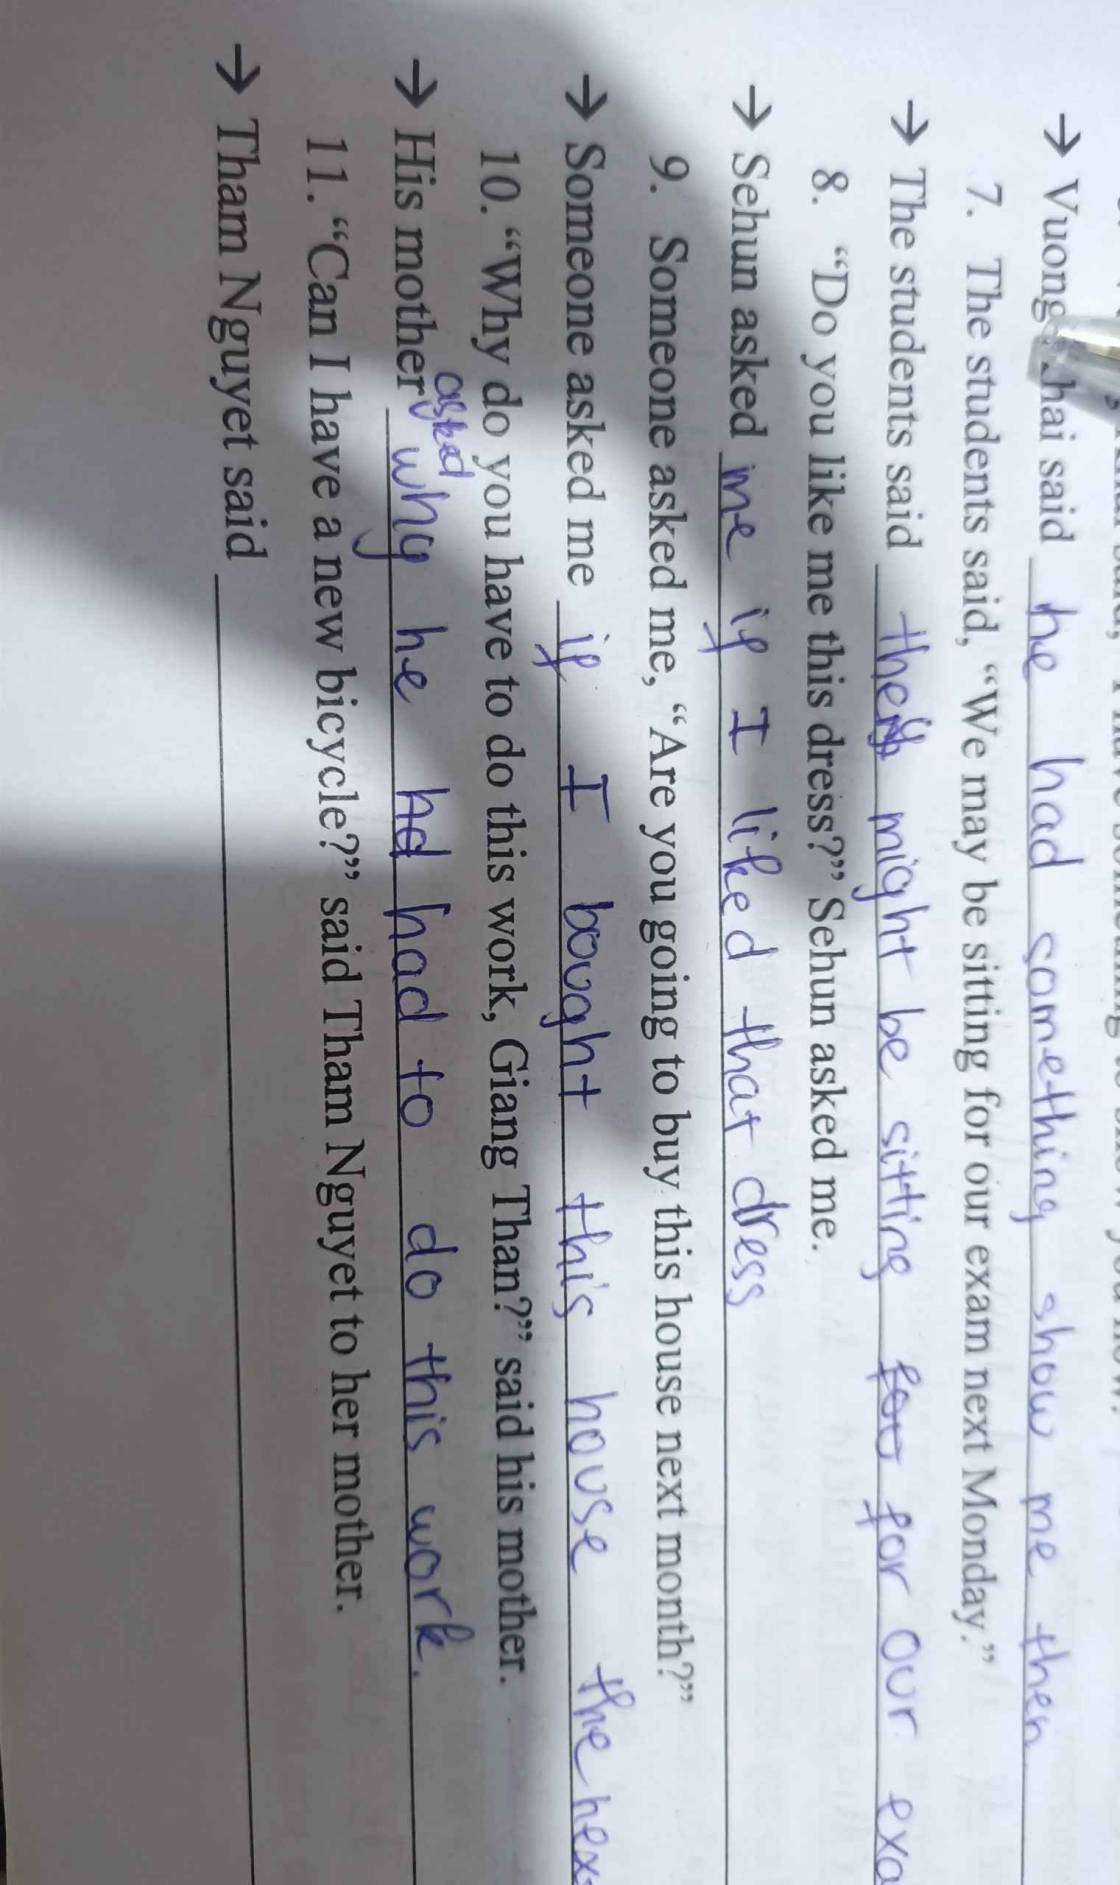 → Vuong hai said he had something show me then
7. The students said, “We may be sitting for our exam next Monday.”
→ The students said they might be sitting for our exa
8. “Do you like me this dress?” Sehun asked me.
→ Sehun asked me if I liked that dress
9. Someone asked me, “Are you going to buy this house next month?”
→ Someone asked me if I bought this house the nex
10. “Why do you have to do this work, Giang Than?” said his mother.
→ His mother asked why he had to do this work.
11. “Can I have a new bicycle?” said Tham Nguyet to her mother.
→ Tham Nguyet said